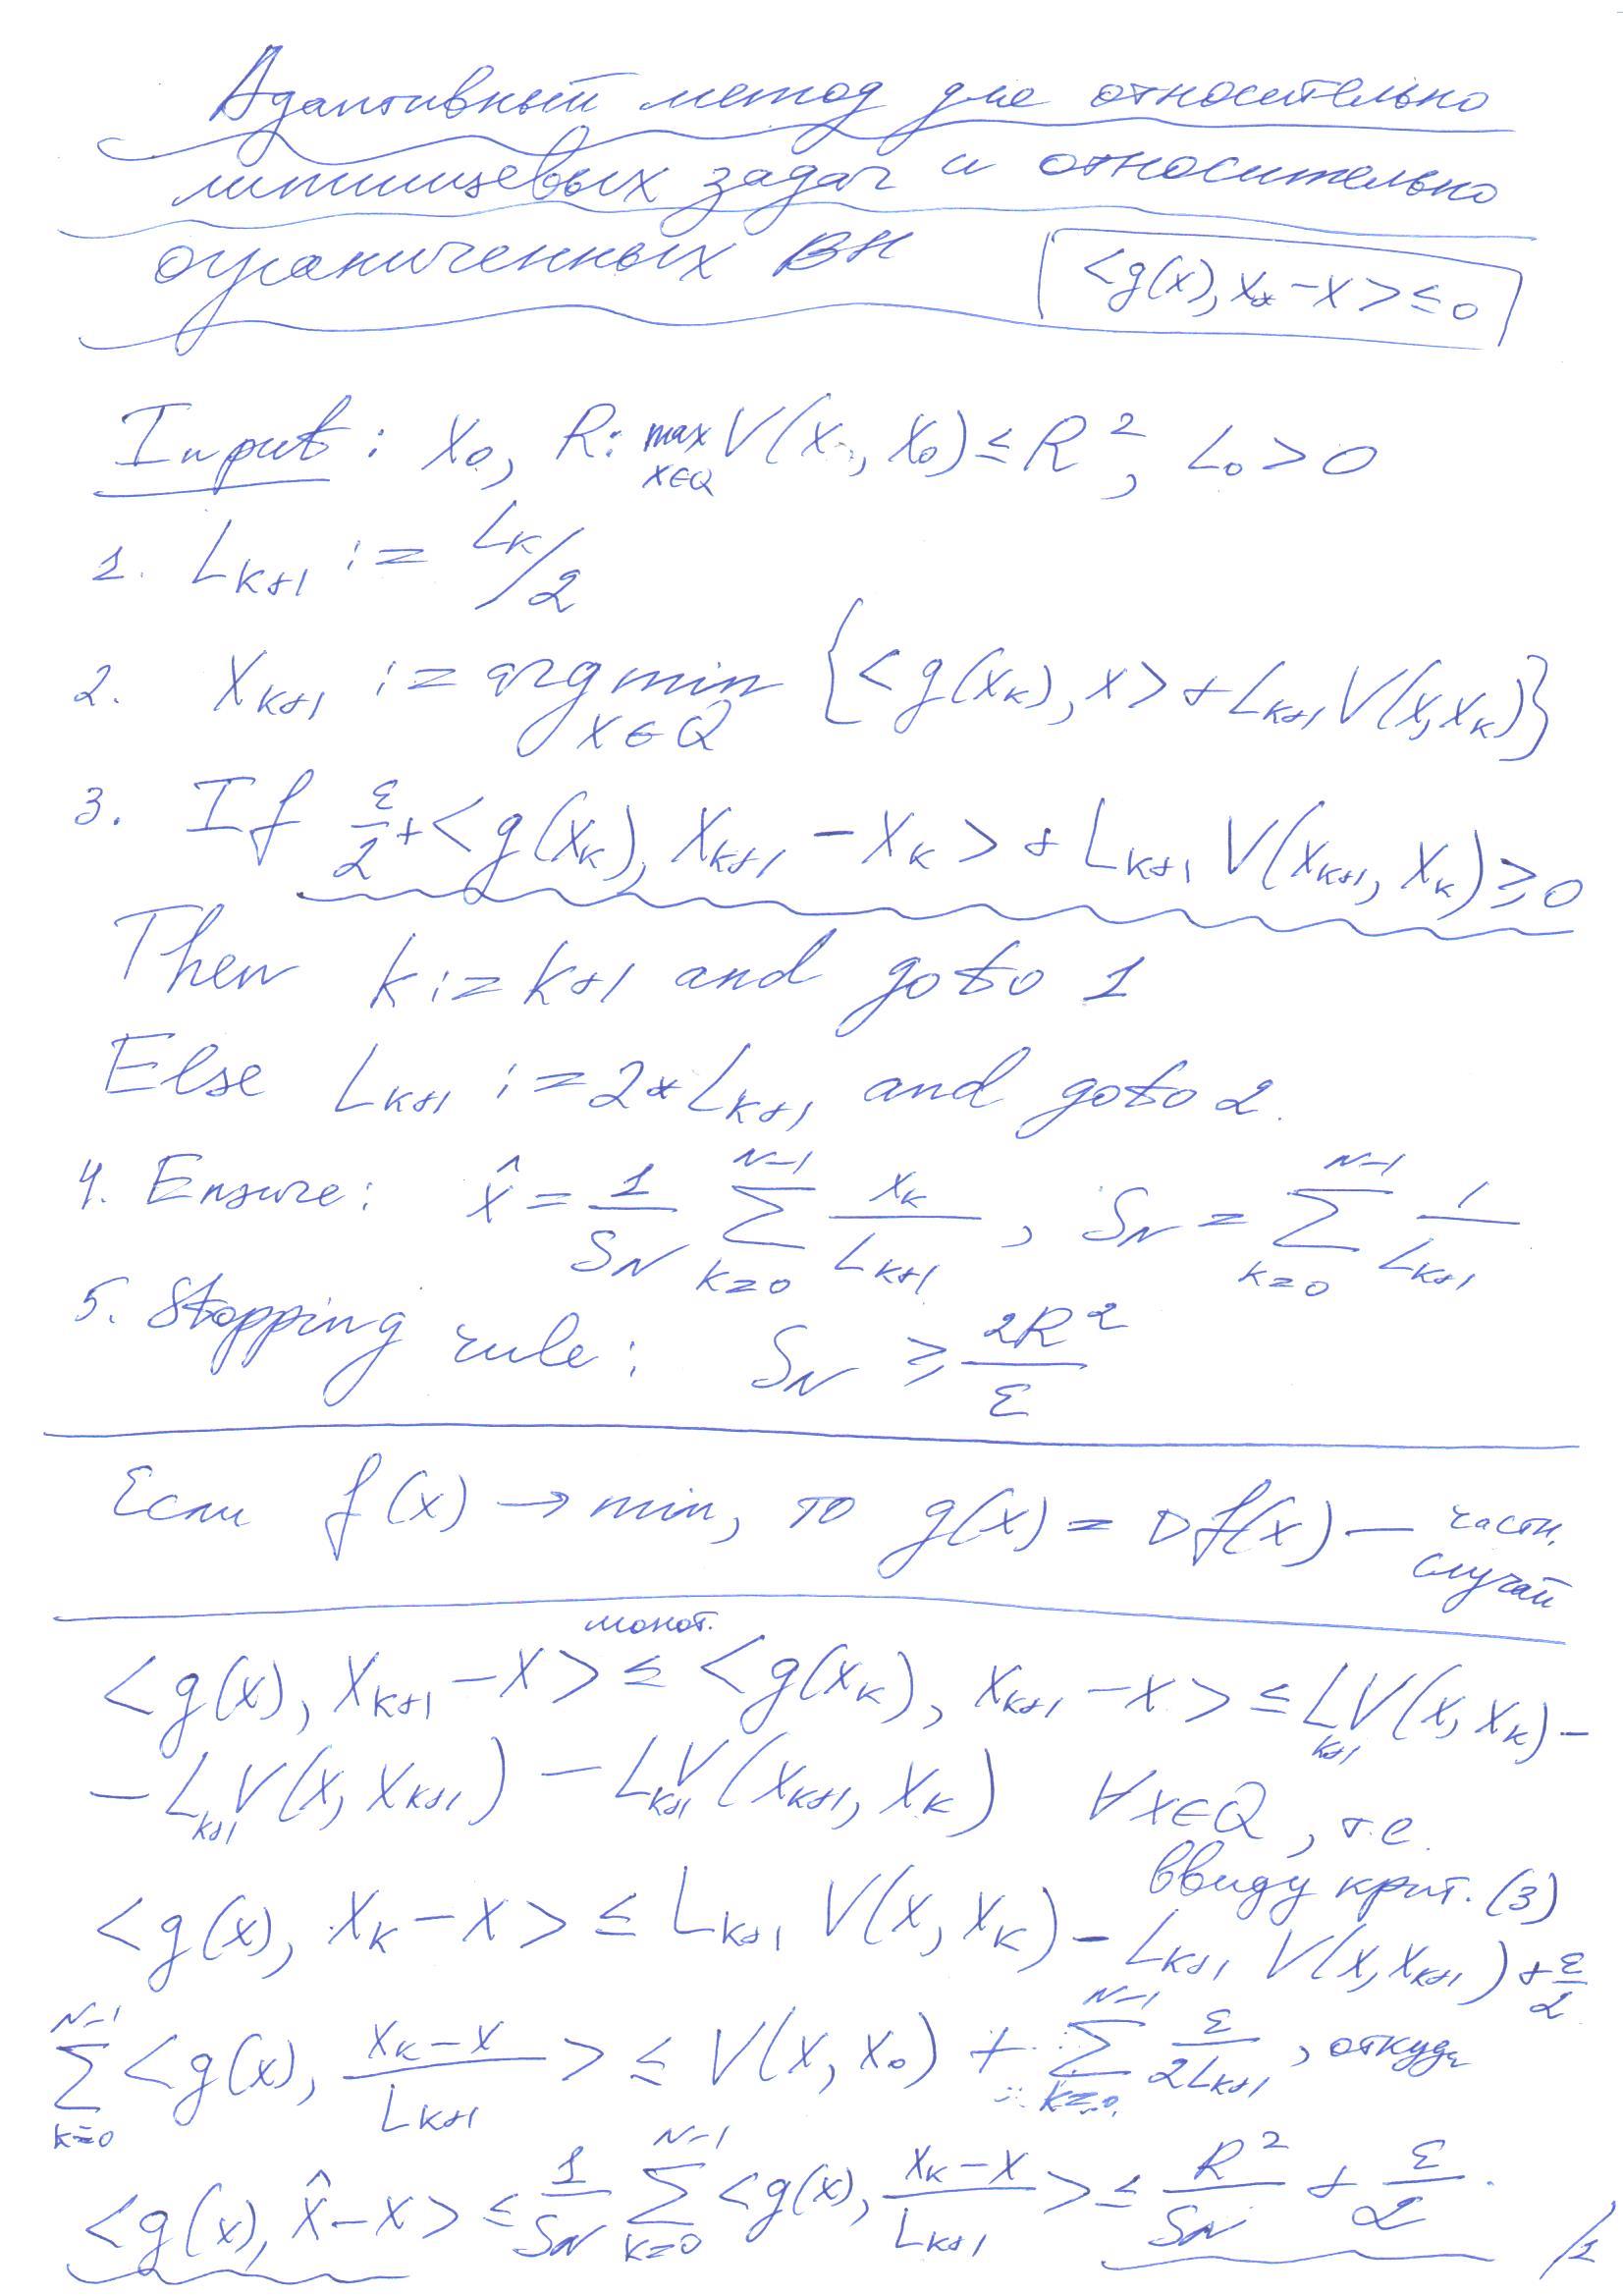 Адаптивный метод для относительно
липшицевых задач и относительно
ограниченных ВН
<g(x), x_* - x> ≤ 0
Input: x_0, R: max_{x∈Q} V(x, x_0) ≤ R^2, L_0 > 0
1. L_{k+1} := L_k/2
2. x_{k+1} := arg min_{x∈Q} {<g(x_k), x> + L_{k+1} V(x, x_k)}
3. If ε/2 + <g(x_k), x_{k+1} - x_k> + L_{k+1} V(x_{k+1}, x_k) ≥ 0
Then k := k+1 and go to 1
Else L_{k+1} := 2*L_{k+1} and go to 2.
4. Ensure: x̂ = 1/S_N ∑_{k=0}^{N-1} x_k/L_{k+1}, S_N = ∑_{k=0}^{N-1} 1/L_{k+1}
5. Stopping rule: S_N ≥ 2R^2/ε
Если f(x) → min, то g(x) = ∇f(x) — частн.
случай
монот.
<g(x), x_{k+1} - x> ≤ <g(x_k), x_{k+1} - x> ≤ L_{k+1} V(x, x_k) -
- L_{k+1} V(x, x_{k+1}) - L_{k+1} V(x_{k+1}, x_k) ∀x∈Q, т.е.
ввиду крит. (3)
<g(x), x_k - x> ≤ L_{k+1} V(x, x_k) - L_{k+1} V(x, x_{k+1}) + ε/2
∑_{k=0}^{N-1} <g(x), (x_k - x)/L_{k+1}> ≤ V(x, x_0) + ∑_{k=0}^{N-1} ε/2L_{k+1}, откуда
<g(x), x̂ - x> ≤ 1/S_N ∑_{k=0}^{N-1} <g(x), (x_k - x)/L_{k+1}> ≤ R^2/S_N + ε/2.
/1